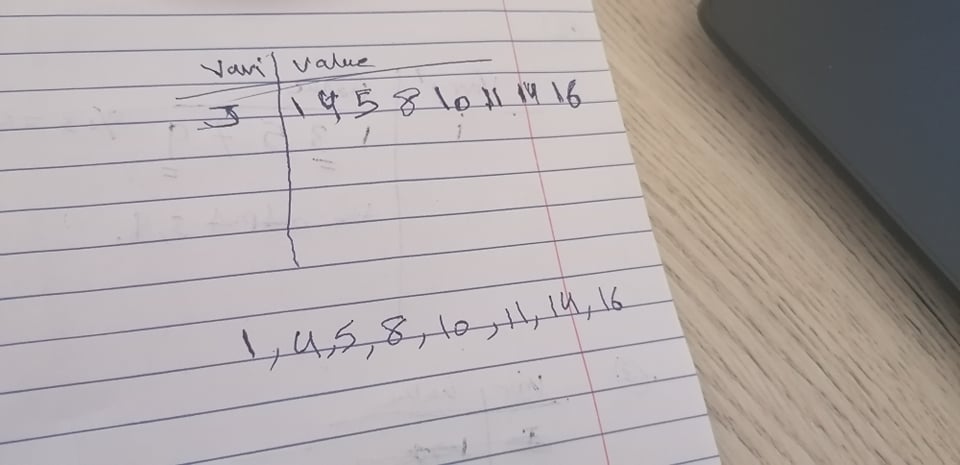 Vari value
J 1 4 5 8 10 11 14 16
1, 4, 5, 8, 10, 11, 14, 16